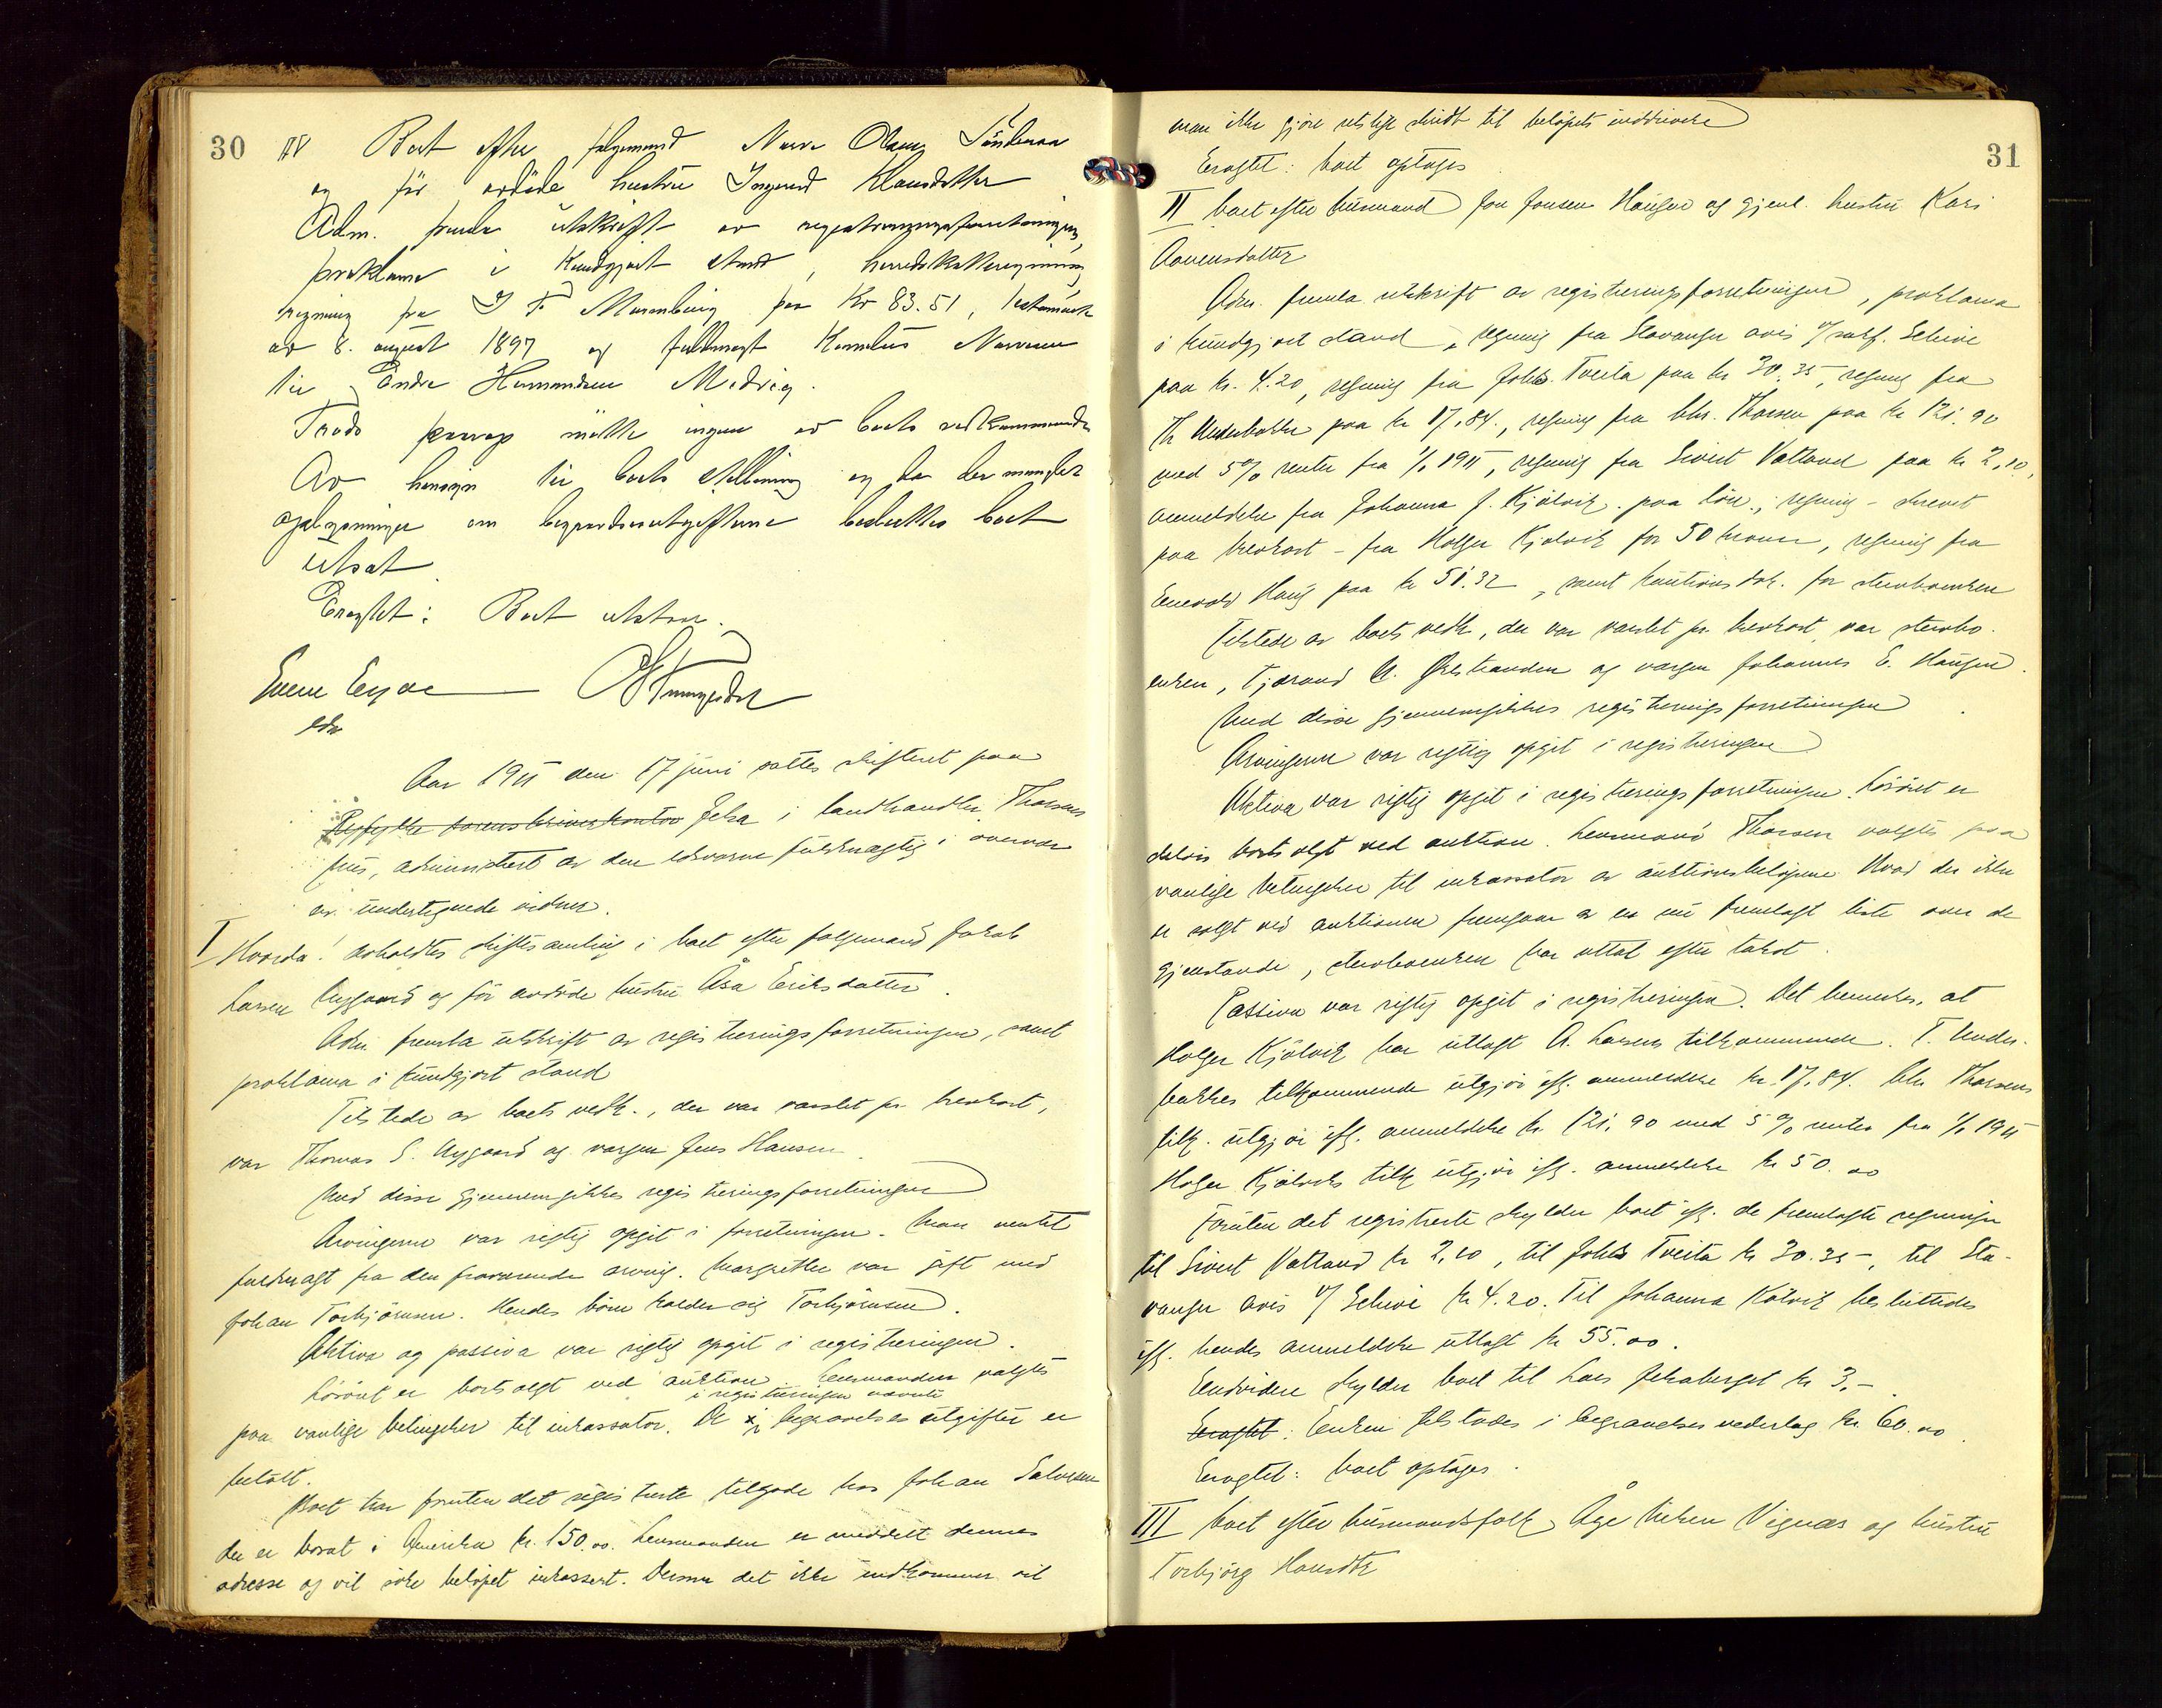 30
IV Boet efter følgemand Narve Olsen Sönbenaa
og før avdøde hustru Ingerid Klausdatter
Adm. fremla utskrift av registreringsforretningen,
proklama i kundgjort stand, herredskatteregning
regning fra I F Maremburg paa Kr 83.51, testament
av 8. august 1897 og fuldmagt Kornelius Narvesen
til Endre Hermundsen Medvig.
Trods paarop mötte ingen av boets vedkommende
Av hensyn til boets stilling og da der mangler
oplysninger om begravelsesutgifterne besluttes boet
utsat
Eragtet: Boet utstaar.
Aar 1911 den 17 juni sattes skifteret paa
Ryfylke sorenskriverkontor Jelsa i landhandler Thorsens
hus, administrert av den edsvorne fuldmægtig i overvær
av undertegnede vidner.
I Hvorda! avholdtes skiftesamling i boet efter følgemand Jakob
Larsen Nygaard og för avdøde hustru Åsa Eriksdatter.
Adm. fremla utskrift av registreringsforretningen, samt
proklama i kundgjort stand
Tilstede av boets vedk., der var varslet pr. brevkort,
var Thomas S. Nygaard og vergen Jens Hansen.
Med disse gjennemgikkes registreringsforretningen
Arvingerne var rigtig opgit i forretningen. Man ventet
fuldmagt fra den fraværende arving. Margrethe var gift med
Johan Torbjörnsen. Hendes börn kalder sig Torbjörnsen.
Aktiva og passiva var rigtig opgit i registreringen.
Lösöret er bortsolgt ved auktion. Lensmanden valgtes
i registreringen nævnte
paa vanlige betingelser til inkassator. De begravelses utgifter er
betalt.
Boet har foruten det registrerte tilgode hos Johan Salvesen
der er bosat i Amerika kr. 150.00. Lensmanden er meddelt dennes
adresse og vil söke belöpet inkassert. Dersom det ikke indkommer vil
31
man ikke gjöre retslige skridt til belöpets inddrivelse
Eragtet: boet optages
II boet efter husmand Jon Jonsen Haugen og gjenl. hustru Kari
Aanensdatter
Adm. fremla utskrift av registreringsforretningen, proklama
i kundgjort stand, regning fra Stavanger avis v/ sakf. Scheie
paa kr. 4.20, regning fra Johs. Tveita paa kr 30.35, regning fra
Th Underbakke paa kr 17.84., regning fra Chr. Thorsen paa kr 121.90
med 5% renter fra 1/1 1911, regning fra Sivert Vatland paa kr 2,10,
anmeldelse fra Johanna J. Kjölvik paa lön, regning - skrevet
paa brevkort - fra Holger Kjølvik for 50 kroner, regning fra
Enevald Haug paa kr 51.32, samt kautions dok. for stervboenken
Tilstede av boets vedk., der var varslet pr. brevkort, var stervbo-
enken, Tjærand A. Ørestranden og vergen Johannes E. Haugen.
Med disse gjennemgikkes registreringsforretningen
Arvingerne var rigtig opgit i registreringen
Aktiva var rigtig opgit i registreringsforretningen. Lösöret er
delvis bortsolgt ved auktion. Lensmand Thorsen valgtes paa
vanlige betingelser til inkassator av auktionsbelöpene. Hvad der ikke
er solgt ved auktionen fremgaar av en nu fremlagt liste over de
gjenstande, stervboenken har uttat efter takst.
Passiva var rigtig opgit i registreringen. Det bemerkes, at
Holger Kjölvik har utlagt A. Larsens tilkommende. T. Under-
bakkes tilkommende utgjör ifg. anmeldelse kr. 17,84. Chr Thorsens
tilk. utgjör ifg. anmeldelse kr 121,90 med 5% renter fra 1/1 1911
Holger Kjölviks tilk utgjör ifg. anmeldelse kr 50.00
Foruten det registrerte skylder boet ifg. de fremlagte regninger
til Sivert Vatland kr 2,10, til Johs Tveita kr 30.35, til Sta-
vanger avis v/ Scheie kr 4.20. Til Johanna Kölvik besluttedes
ifg. hendes anmeldelse utlagt kr 55.00.
Endvidere skylder boet til Lars Jelsaberget kr 3,-.
Eragtet: Enken tilstodes i begravelsesvederlag kr. 60.00.
Eragtet: boet optages.
III boet efter husmandsfolk Åge Vignæs og hustru
Torbjörg Hansdtr